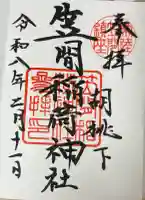 奉拝
胡桃下
笠間稲荷神社
令和八年二月十一日